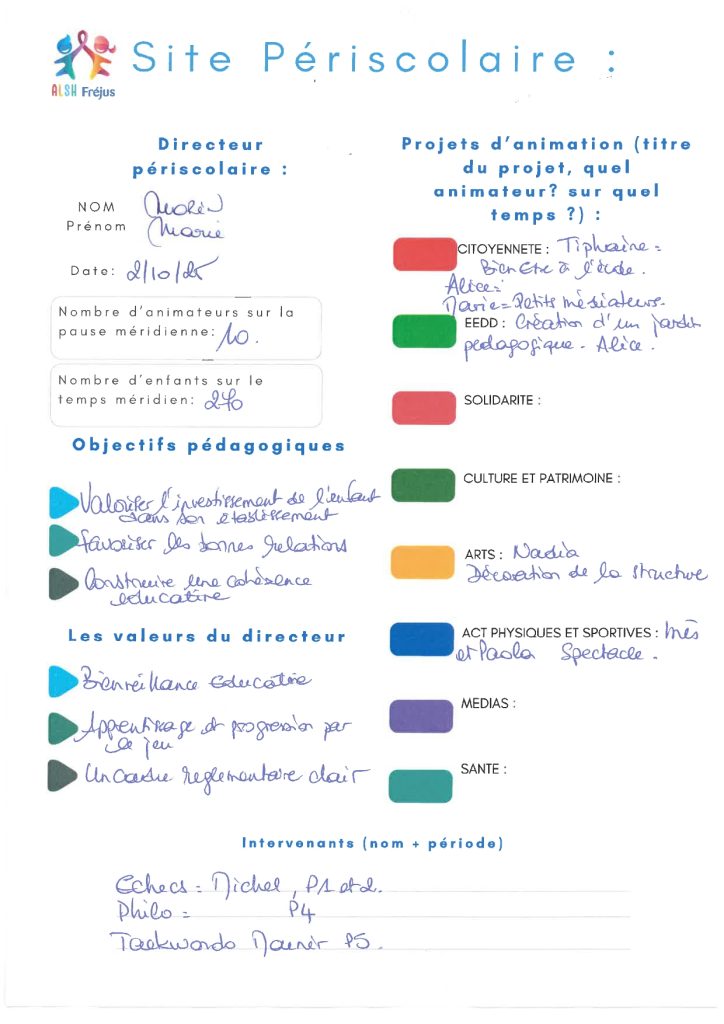 ALSH Fréjus
Site Périscolaire :
Directeur
périscolaire :
NOM
Prénom Marie
Date: 2/10/25
Nombre d'animateurs sur la
pause méridienne: 10.
Nombre d'enfants sur le
temps méridien: 270
Objectifs pédagogiques
Valoriser l'investissement de l'enfant
dans son établissement
favoriser les bonnes relations
Construire une cohérence
educative
Les valeurs du directeur
Bienveillance educative
Apprentissage et progression par
le jeu
Un cadre reglementaire clair
Projets d'animation (titre
du projet, quel
animateur? sur quel
temps ?) :
CITOYENNETE : Tiphaine =
Bien être à l'école.
Alice =
Marie = Petits médiateurs.
EEDD : Création d'un jardin
pedagogique. Alice.
SOLIDARITE :
CULTURE ET PATRIMOINE :
ARTS : Nadia
Décoration de la structure
ACT PHYSIQUES ET SPORTIVES : Inès
et Paola Spectacle.
MEDIAS :
SANTE :
Intervenants (nom + période)
Echecs = Michel, P1 et 2.
Philo = P4
Taekwondo Mounir P5.